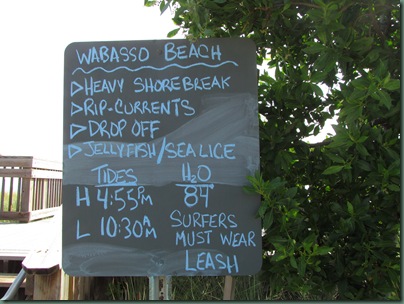 WABASSO BEACH
▷HEAVY SHOREBREAK
▷RIP-CURRENTS
▷DROP OFF
▷JELLYFISH/SEA LICE
TIDES
H 4:55PM
L 10:30AM
H2O
84
SURFERS
MUST WEAR
LEASH